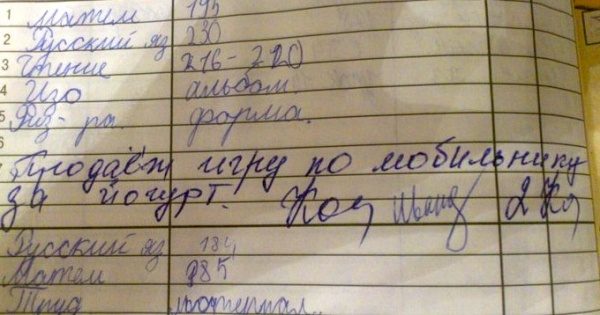 1 Матем 195
2 Русский яз 230
3 Чтение 216-220
4 Изо альбом.
5 Физ-ра. форма.
Продаёт игру по мобильнику
за йогурт.
Русский яз 184
Матем 285
Труд материал.